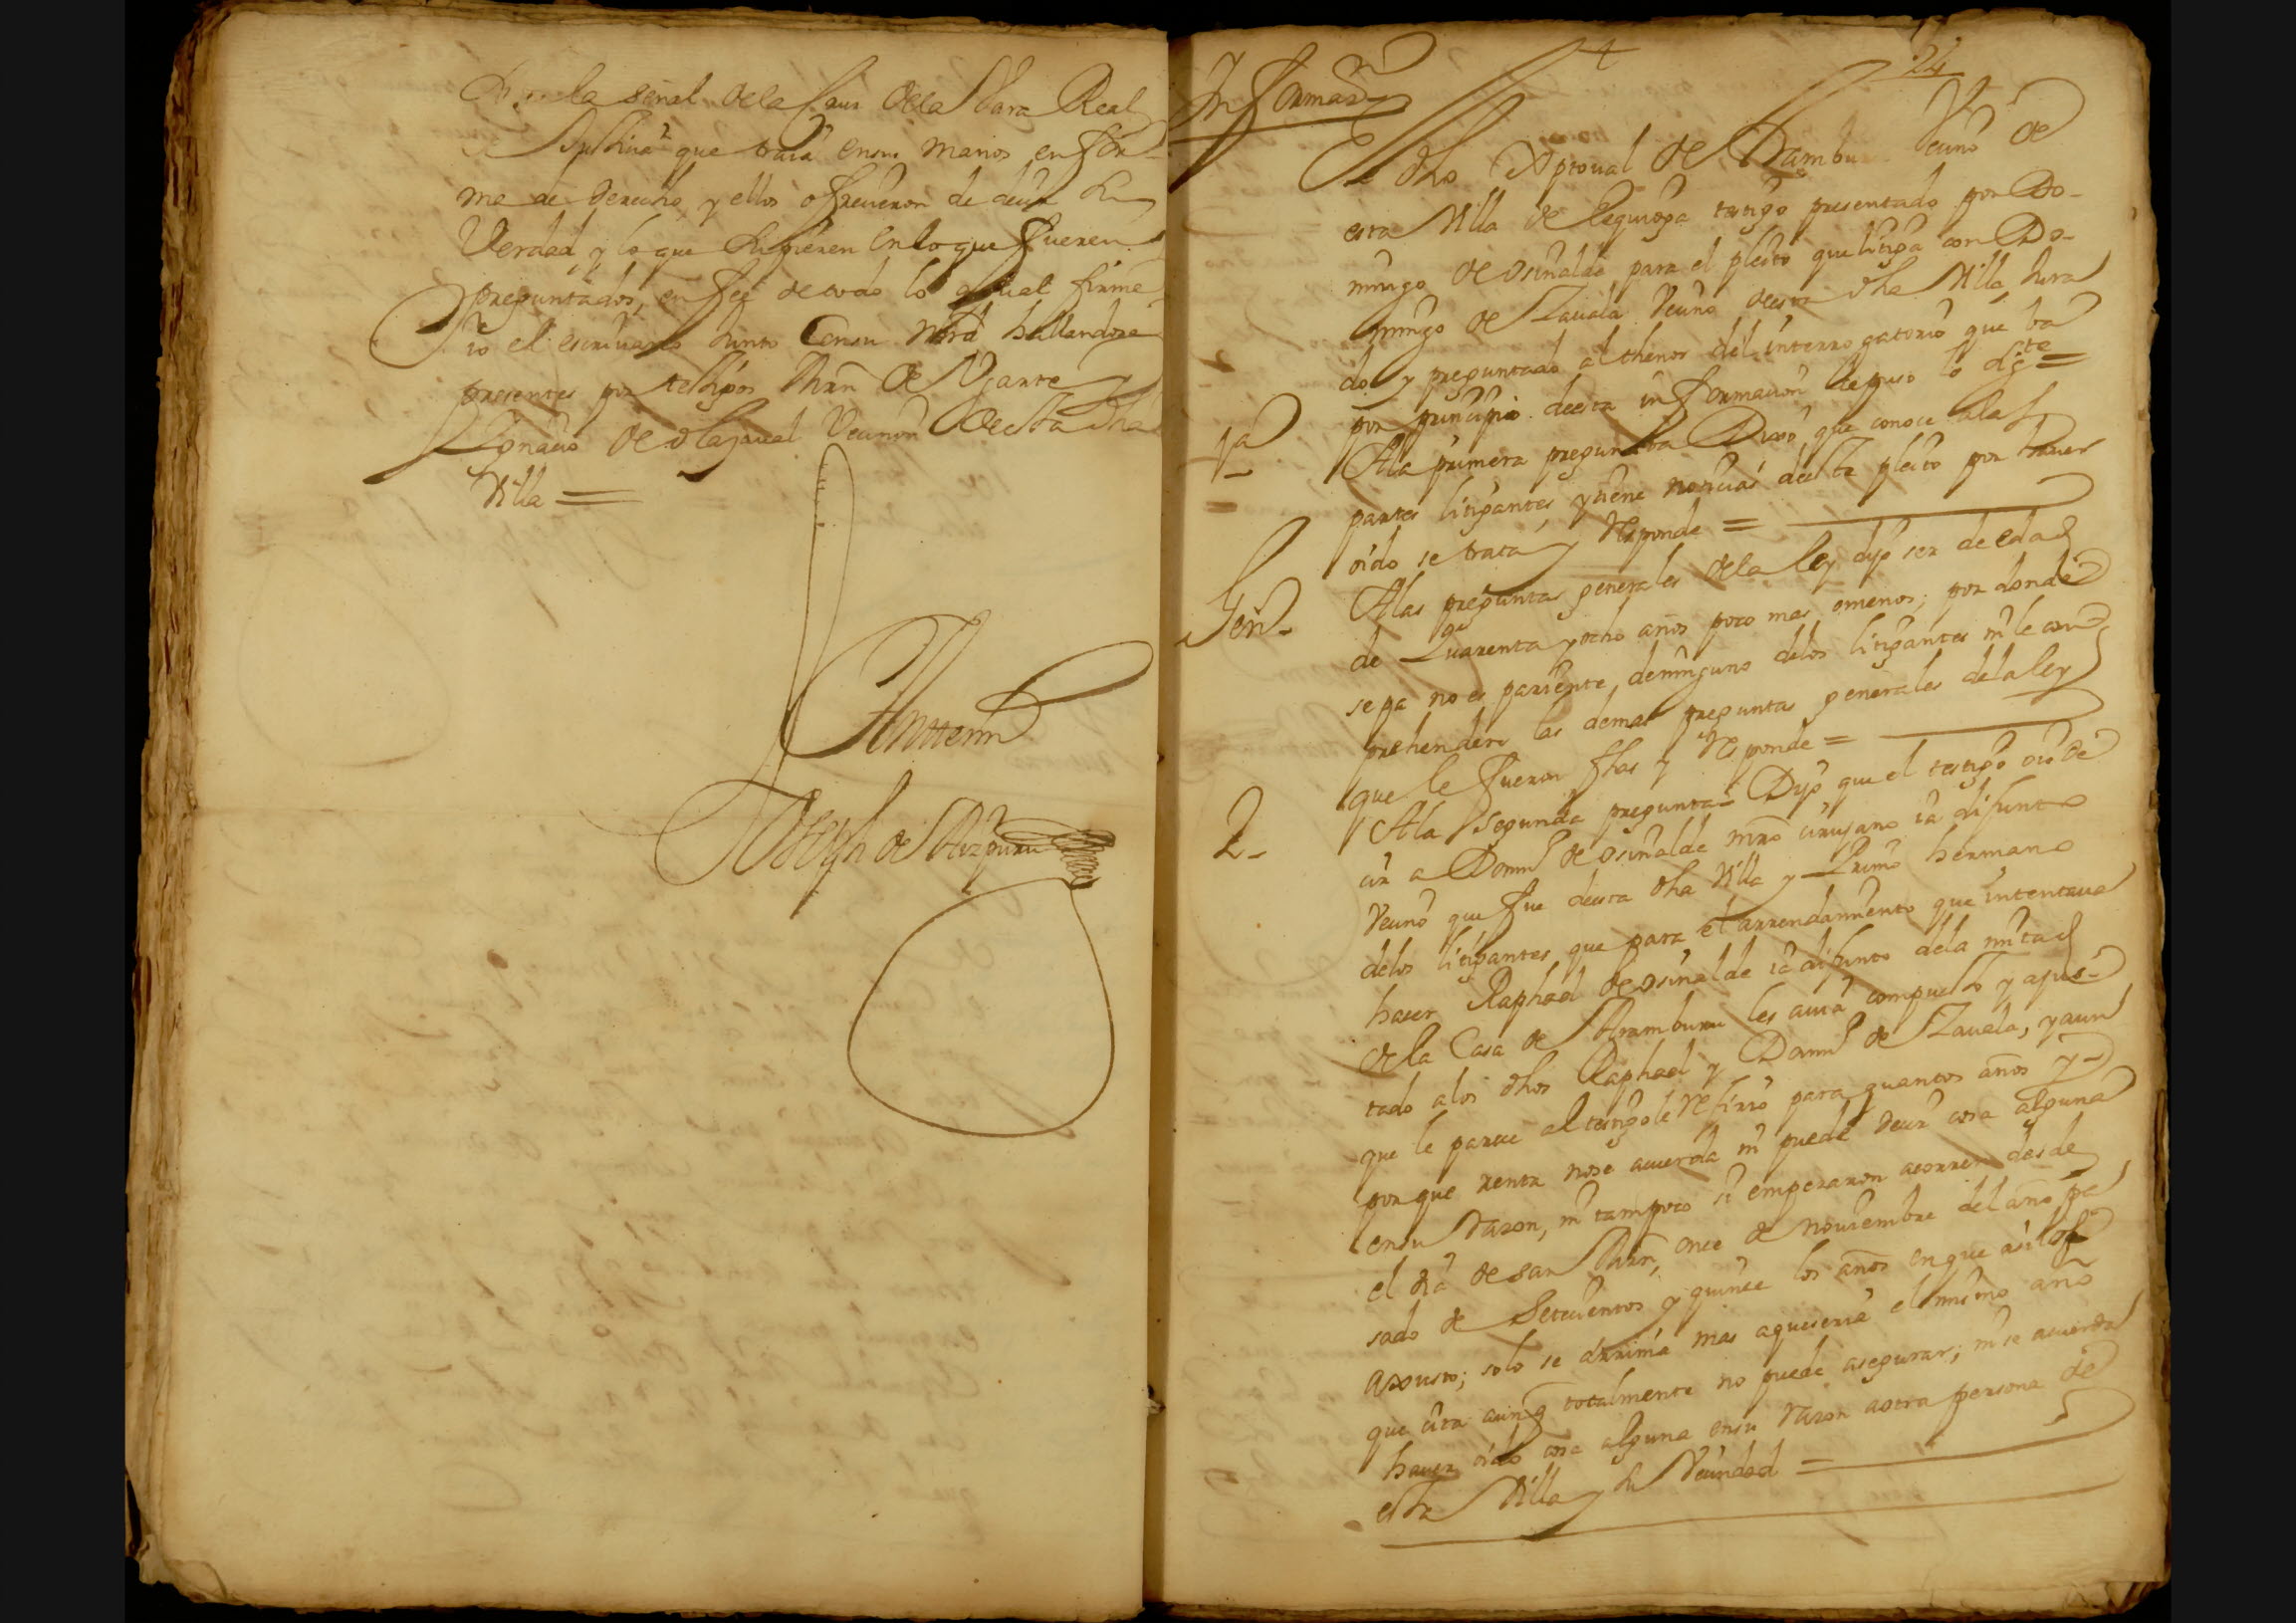 la señal de la Cruz de la Vara Real
de Justiciaª que traia en sus manos en for-
ma de derecho, y ellos ofrecieron de decir la
Verdad, y lo que supieren en lo que fueren
preguntados, en fee de todo lo qual firmé
io el escriuano Junto con su mrd hallandose
presentes por testigos Mrn de Ugarte
Ignacio de Olazaual Vecinos de esta dha
Villa =
Antte mi
Joseph de Aizpuru
24
Informaon
El dho Xptoual de Arambu Vecino de
esta Villa de Legazpia testigo presentado por Do-
mingo de osinalde para el pleito que litiga con Do-
mingo de Zauala Vecino de esta dha Villa, Jura
do y preguntado al thenor del interrogatorio que ba
por principio de esta informacion depuso lo sigte =
1ª A la primera pregunta Dixo que conoce a las
partes litigantes, y tiene noticias de este pleito por hauer
oido se trata y Responde =
Gen- A las preguntas generales de la ley dijo ser de edad
de Quarenta y ocho años poco mas, o menos; por donde
sepa no es pariente de ninguno de los litigantes ni le com
prehenden las demas preguntas generales de la ley
que le fueron fhas y Responde =
2- A la segunda pregunta Dijo que el testigo oio de
cir a Domo de osinalde mro cirujano ia difunto
Vecino que fue de esta dha Villa y Primo hermano
de los litigantes, que para el arrendamiento que intentaua
hacer Raphael de osinalde ia difunto de la mitad
de la Casa de Aramburu les auia compuesto y ajus-
tado a los dhos Raphael y Domo de Zauala, y aun
que le parece al testigo le Refirio para quantos años y
por que renta no se acuerda ni puede decir cosa alguna
en su razon, ni tampoco si empezaron a correr desde
el dia de san Mrn, once de nouiembre del año pa
sado de Setecientos y quince los años en que asi los
axusto; solo se arrima mas a que seria el mismo año
que cita aunq totalmente no puede asegurar; ni se acuerda
hauer oido cosa alguna en su razon a otra persona de
esta Villa y su Vecindad =